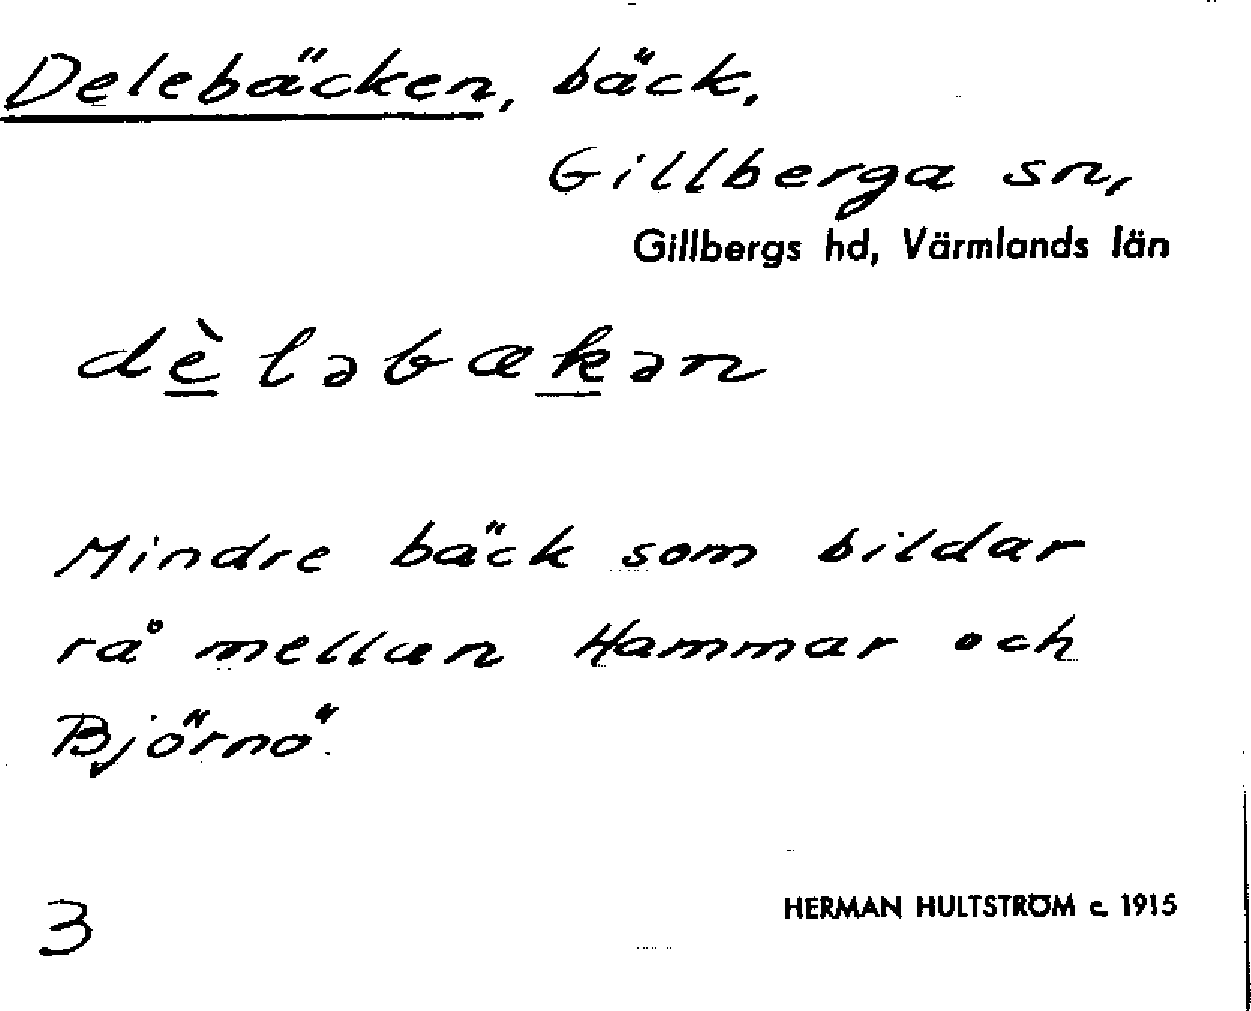 Delebäcken, bäck,
Gillberga sn,
Gillbergs hd, Värmlands län
dèləbækən
Mindre bäck som bildar
rå mellan Hammar och
Björnö.
3
HERMAN HULTSTRÖM c. 1915